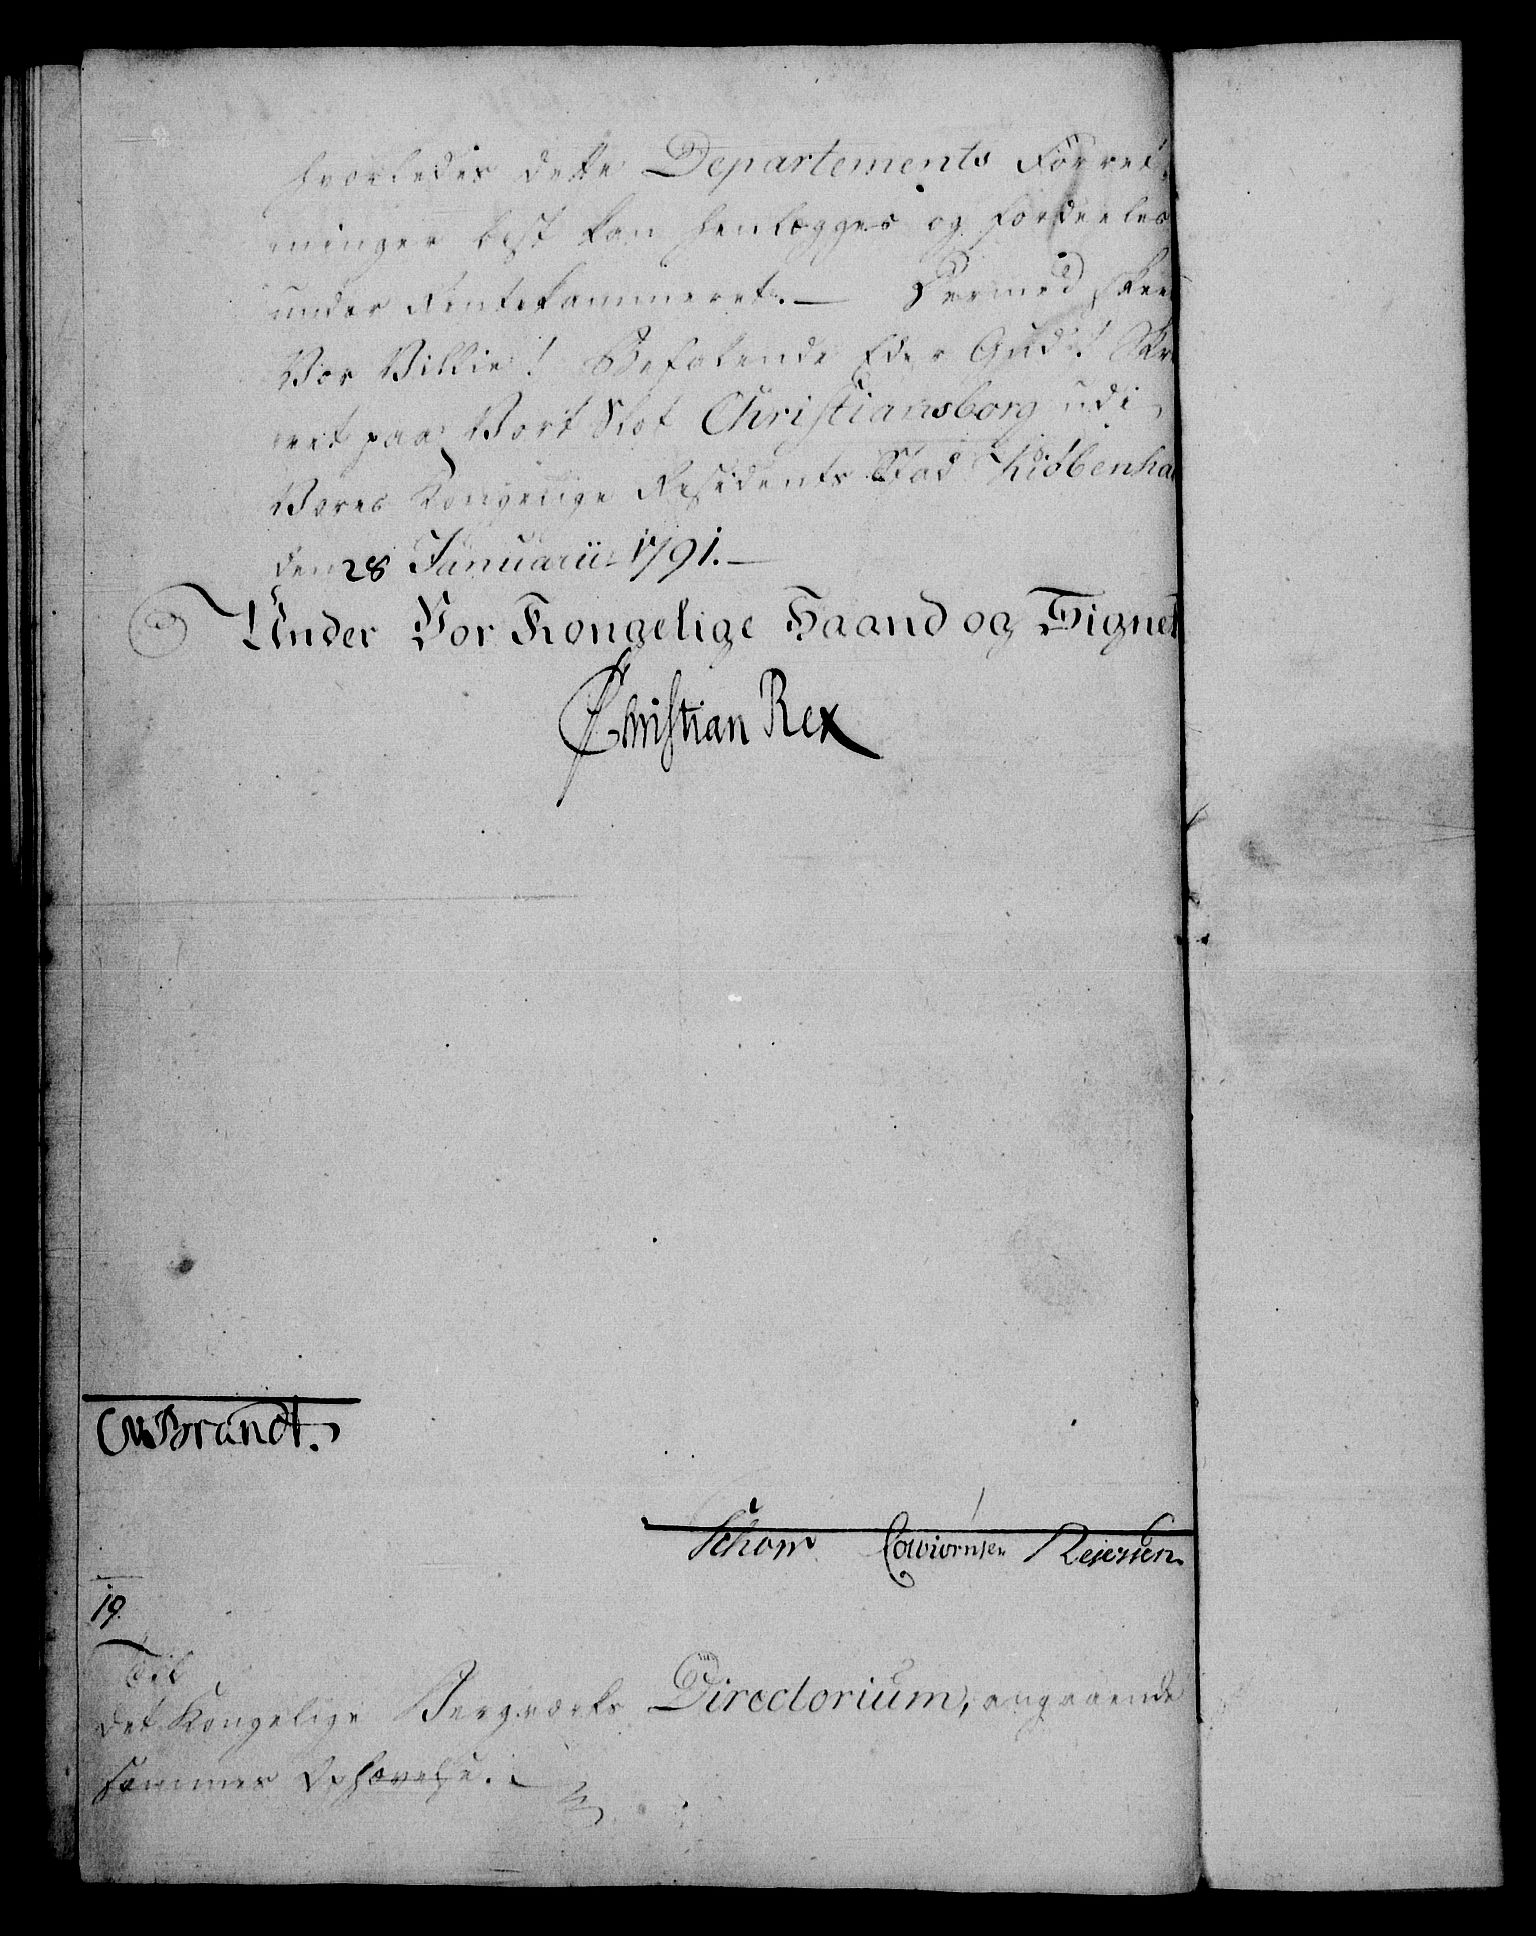 hvorledes dette Departements Forret-
ninger best kan henlægges og fordeeles
under Rentekammeret. — Dermed skeer
Vor Villie! Befalende Eder Gud! Skre
vet paa Vort Slot Christiansborg udi
Vores Kongelige Residents Stad Kiøbenha
den 28 Januarii 1791. —
Under Vor Kongelige Haand og Signet
Christian Rex
Brandt.
Schow Colbiørnsen Reiersen
19.
Til
det Kongelige Bergværks Directorium, angaaende
sammes Ophævelse. —